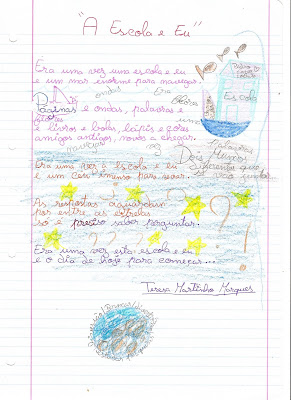 "A Escola e Eu"
Era uma vez uma escola e eu
e um mar enorme para navegar.
ondas
Era
flores
Escola
Páginas e ondas, palavras e
flores
uma
e livros e bolas, lápis e cores
amigos antigos, novos a chegar.
navegar
Palavras
Dois Mundos
Era uma vez a escola e eu
Crianças que
e um céu imenso para voar.
só vão mudar
As respostas aguardam
por entre as estrelas
só é preciso saber perguntar.
Era uma vez esta escola e eu
e o dia de hoje para começar...
Teresa Martinho Marques